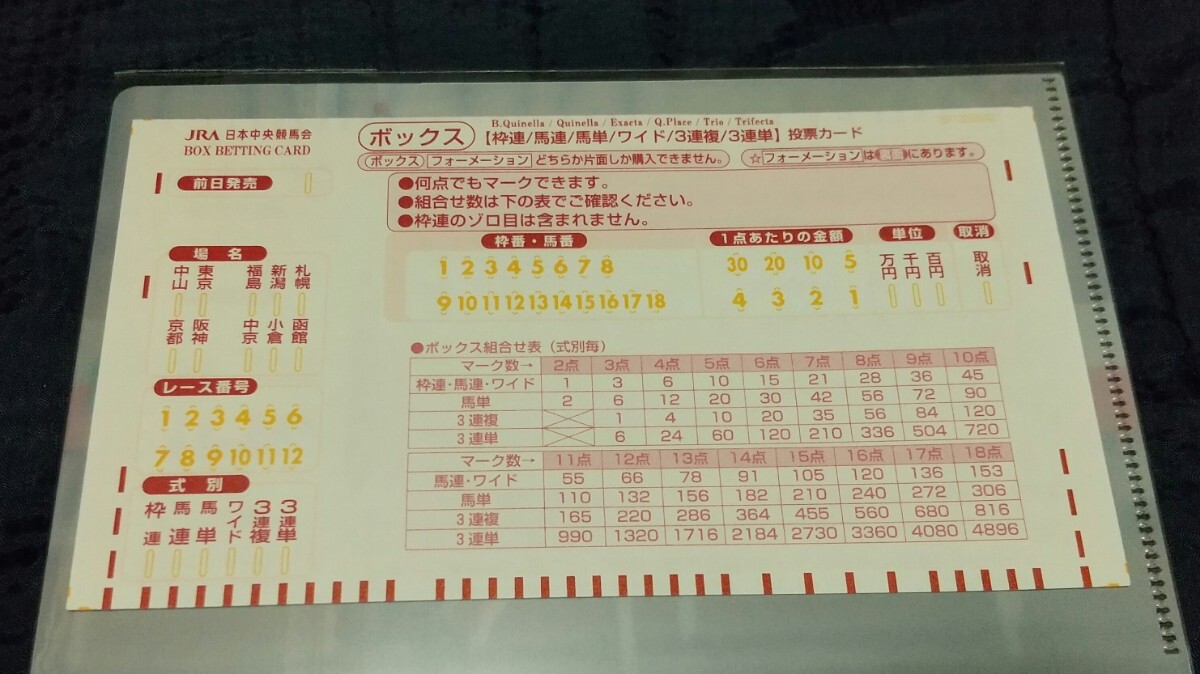 JRA 日本中央競馬会
BOX BETTING CARD
B.Quinella / Quinella / Exacta / Q.Place / Trio / Trifecta
ボックス 【枠連/馬連/馬単/ワイド/3連複/3連単】投票カード
ボックス フォーメーション どちらか片面しか購入できません。
☆フォーメーションは にあります。
前日発売
●何点でもマークできます。
●組合せ数は下の表でご確認ください。
●枠連のゾロ目は含まれません。
場名
中山 東京 福島 新潟 札幌
京都 阪神 中京 小倉 函館
レース番号
1 2 3 4 5 6
7 8 9 10 11 12
式別
枠連 馬連 馬単 ワイド 3連複 3連単
枠番・馬番
1 2 3 4 5 6 7 8
9 10 11 12 13 14 15 16 17 18
1点あたりの金額
30 20 10 5
4 3 2 1
単位
万円 千円 百円
取消
取消
●ボックス組合せ表（式別毎）
マーク数→ 2点 3点 4点 5点 6点 7点 8点 9点 10点
枠連・馬連・ワイド 1 3 6 10 15 21 28 36 45
馬単 2 6 12 20 30 42 56 72 90
3連複 1 4 10 20 35 56 84 120
3連単 6 24 60 120 210 336 504 720
マーク数→ 11点 12点 13点 14点 15点 16点 17点 18点
馬連・ワイド 55 66 78 91 105 120 136 153
馬単 110 132 156 182 210 240 272 306
3連複 165 220 286 364 455 560 680 816
3連単 990 1320 1716 2184 2730 3360 4080 4896